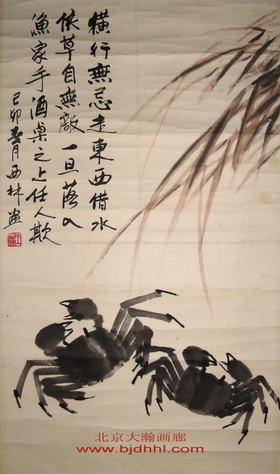 横行無忌走東西借水
依草自無敵一旦落入
漁家手酒桌之上任人欺
己卯春月西林畫
北京大瀚画廊
www.bjdhhl.com